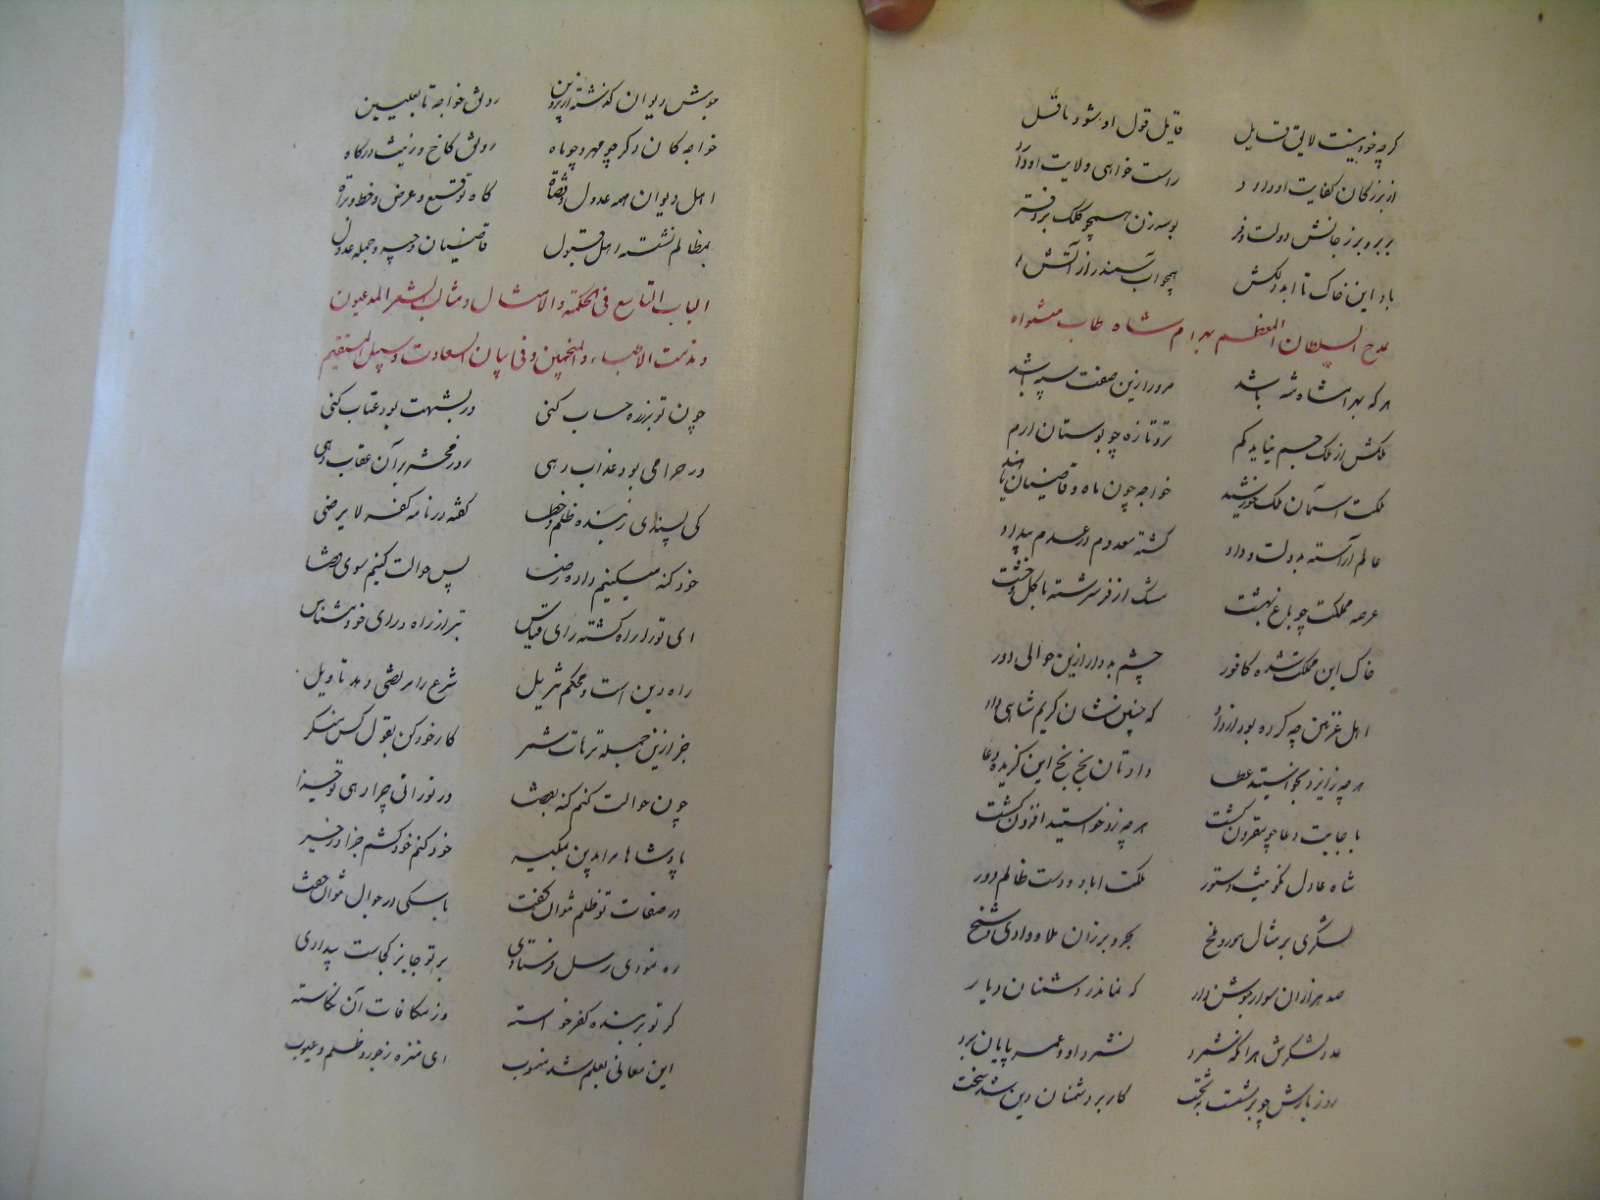 کرچه خود نیست لایق قایل قایل قول او شود ناقل
از بزرکان کفایت او دارد راست خواهی ولایت او دارد
بر در جانش دولت و فر بوسه زن همچو کلک بر دفتر
باد این خاک تا ابد لکش همچو آب سمندر از آتش
مدح السلطان المعظم بهرام شاه طاب مثواه
هر که بهرامشاه شه باشد مرورا زین صفت سپه باشد
ملکش از ملک جم نیاید کم تر و تازه چو بوستان ارم
ملکت آسمان ملک خورشید خواجه چون ماه و قاضیان ناهید
عالم آراسته بدولت و داد کشته معدوم در عدم بیداد
عرصه مملکت چو باغ بهشت مشک از فر سرشته با کل و خشت
خاک این مملکت شده کافور چشم بد دار ازین حوالی دور
اهل غزنین چه کرده بود از داد که چنین شان کریم شاهی داد
هر چه ز ایزد بخواستید عطا دادتان بخ بخ این کزیده دعا
با اجابت دعا چو مقرون کشت هر چه زو خواستید افزون کشت
شاه عادل نکو سیر دستور ملکت آباد و دست ظالم دور
لشکری بر مثال مور و ملخ
صد هزاران سوار جوشن دار که نماند ز دشمنان دیار
عدد لشکرش هر آنکه شمرد نشمرد او و عمر پایان برد
روز بارش چو بر نشست به تخت کار بر دشمنان دین شد سخت
جوشش دیوان کذشته از پروین رونق خواجه تا بعلیین
خواجه کان دکر چو مهر و چو ماه رونق کاخ و زینت درکاه
اهل دیوان همه عدول و قضاة کاه توقیع و عرض و خط و براة
بمظالم نشسته اهل قبول قاضیان وجیه و جمله عدول
الباب التاسع فی الحکمة و الامثال و مثالب الشعراء المدعیون
و مذمت الاطباء و المنجمین و فی بیان السعادت و سبیل المستقیم
چون تو بر ذره حساب کنی ور بشبهت بود عتاب کنی
ور حرامی بود عذاب دهی روز محشر بر آن عقاب دهی
کی پسندی ز بنده ظلم و خطا کفته در نامه کفر لا یرضی
خود کنه میکنیم و داده رضا پس حوالت کنیم سوی قضا
ای تو را راه کشته رای قیاس تبر از راه و رای خود مشناس
راه دین است و محکم تنزیل شرع را مرتضی دهد تاویل
جز ازین جمله ترهات شمر کار خود کن بقول کس منکر
چون حوالت کنم کنه بقضا
پادشاها مرا بدین مکیر خود کنم خود کشم جزا در خیر
در صفات تو ظلم نتوان کفت با سکی در جوال نتوان خفت
ره نمودی رسل فرستادی بر تو جایز کجاست بیدادی
کر تو بر بنده کفر خواسته وز مکافات آن نکاسته
این معانی بعلم شد منسوب ای منزه ز جور و ظلم و عیوب